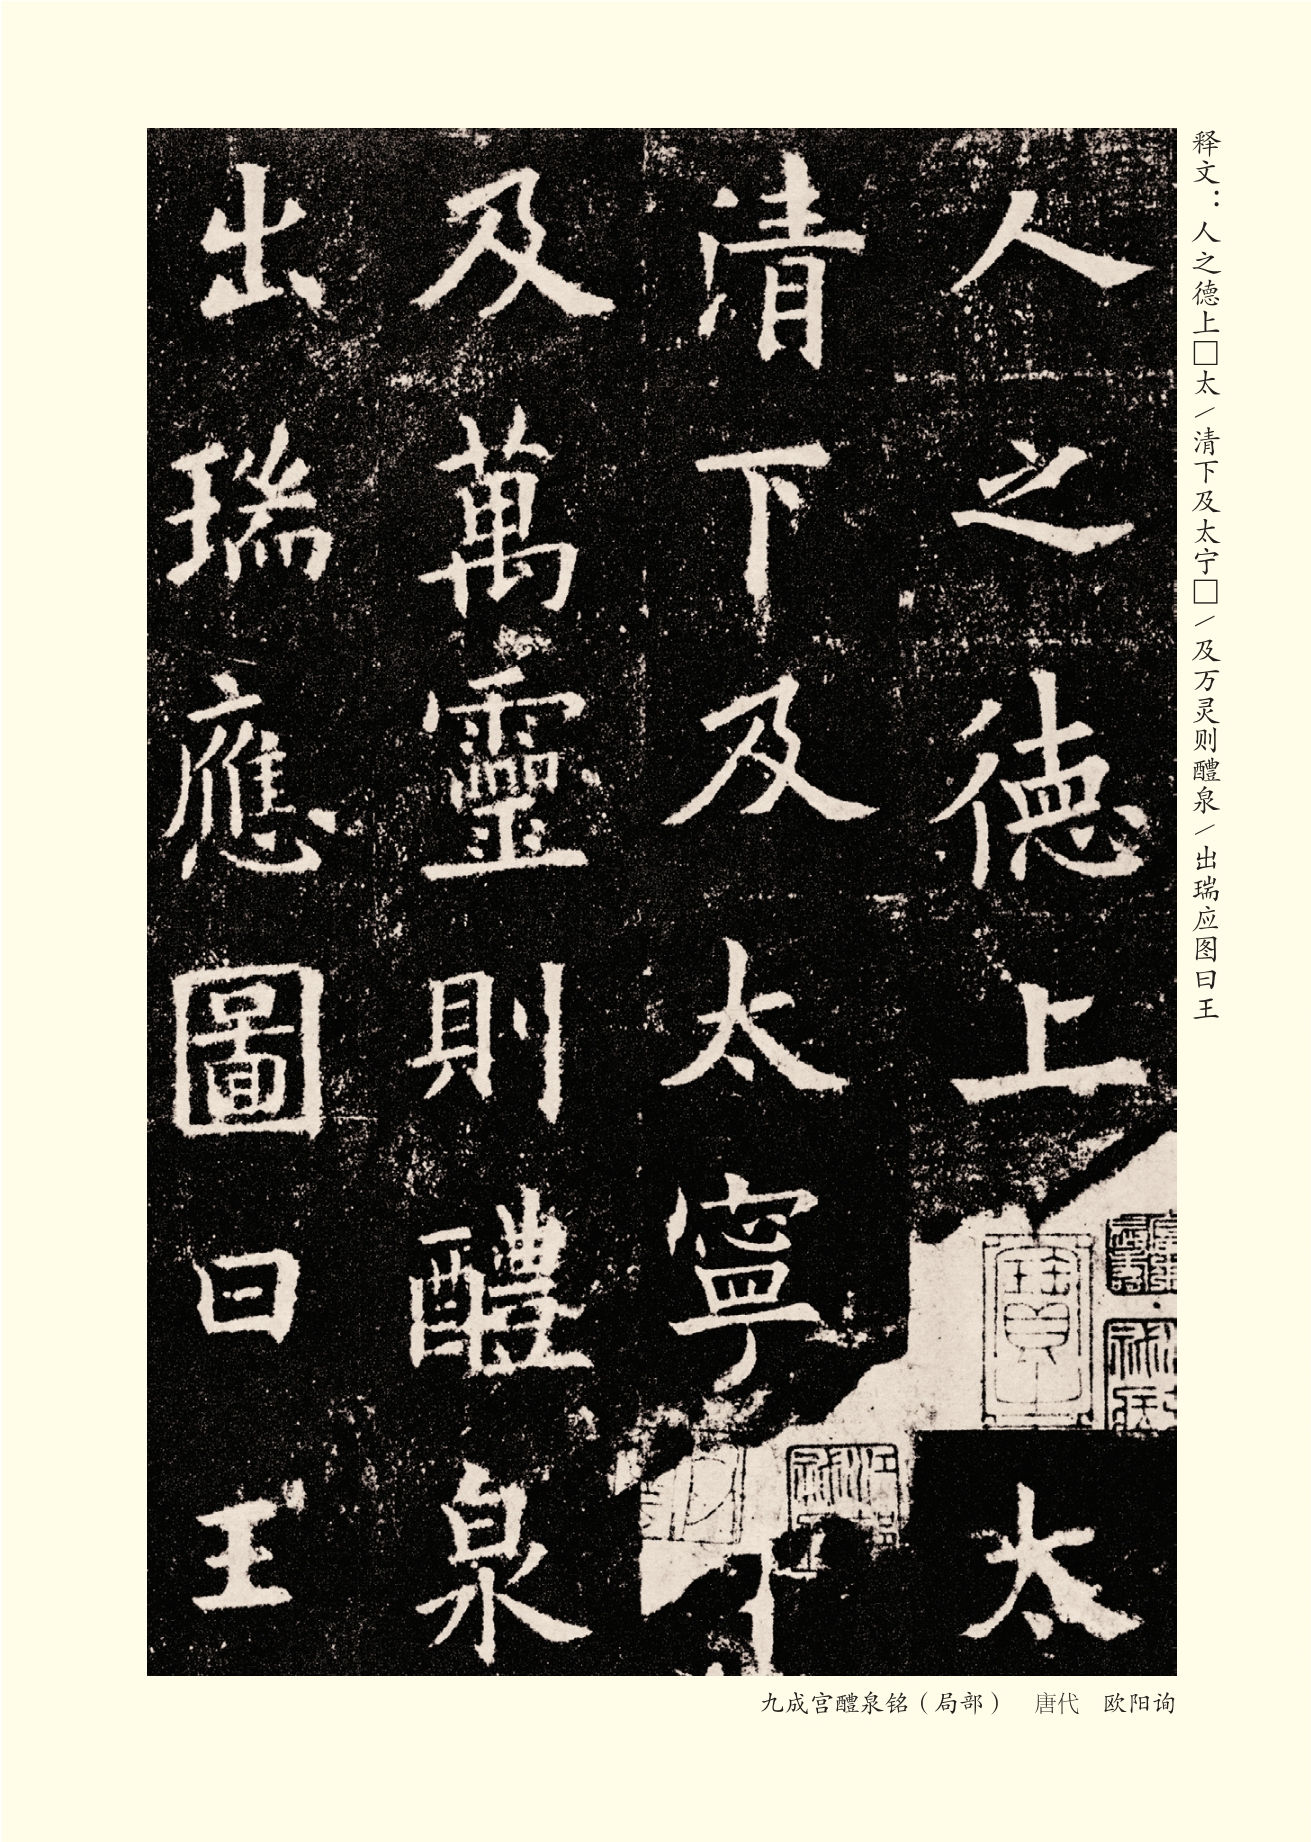 释文：人之德上□太/清下及太宁□/及万灵则醴泉/出瑞应图曰王
人之德上太
清下及太寧
及萬靈則醴泉
出瑞應圖曰王
九成宫醴泉铭（局部） 唐代 欧阳询